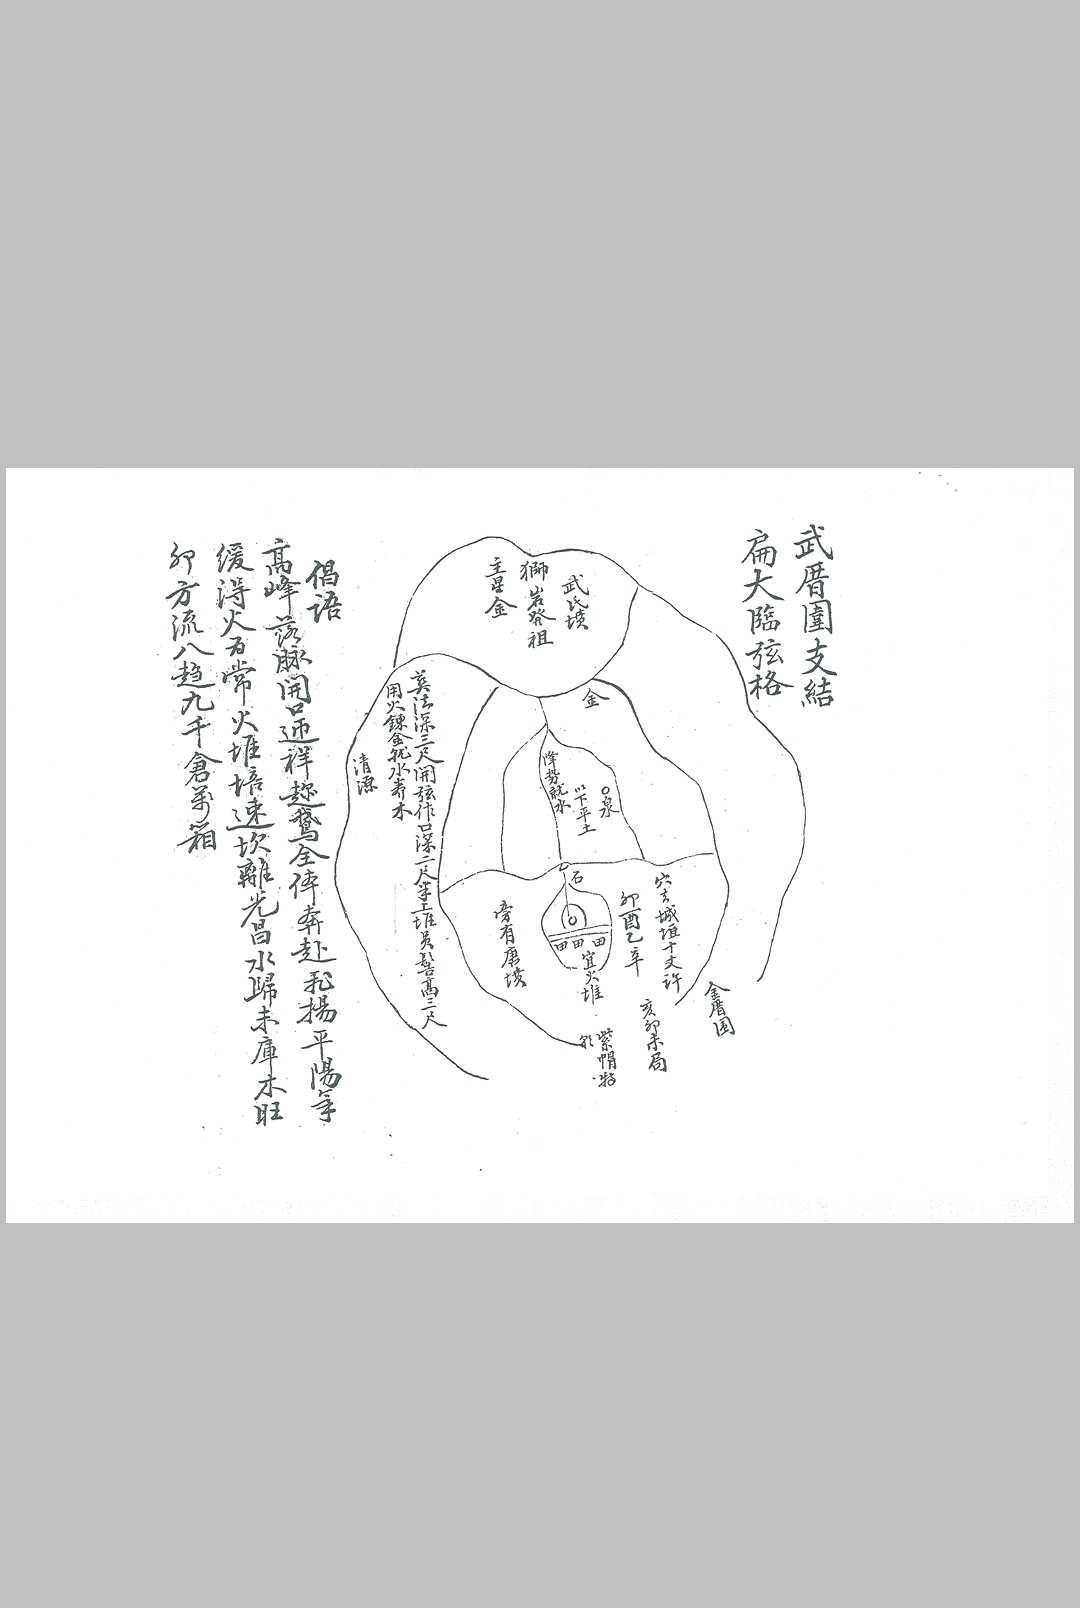 武厝圍支結
扁大臨弦格
武氏墳
獅岩發祖
主星金
金
降勢就水
以下平土
泉
石
穴去城垣十丈許
卯酉乙辛
亥卯未局
金厝圍
田田田
宜火堆
紫帽
旁有唐墳
葬法深三尺開弦作口深二尺半上堆员髻高三尺
用火鍊金就水养木
清源
倡语
高峰落脉開口迎祥 鵞全体奔赴 揚平陽
缓得火为常火堆培速坎離光昌水歸未庫木旺
卯方流八趋九千倉萬箱